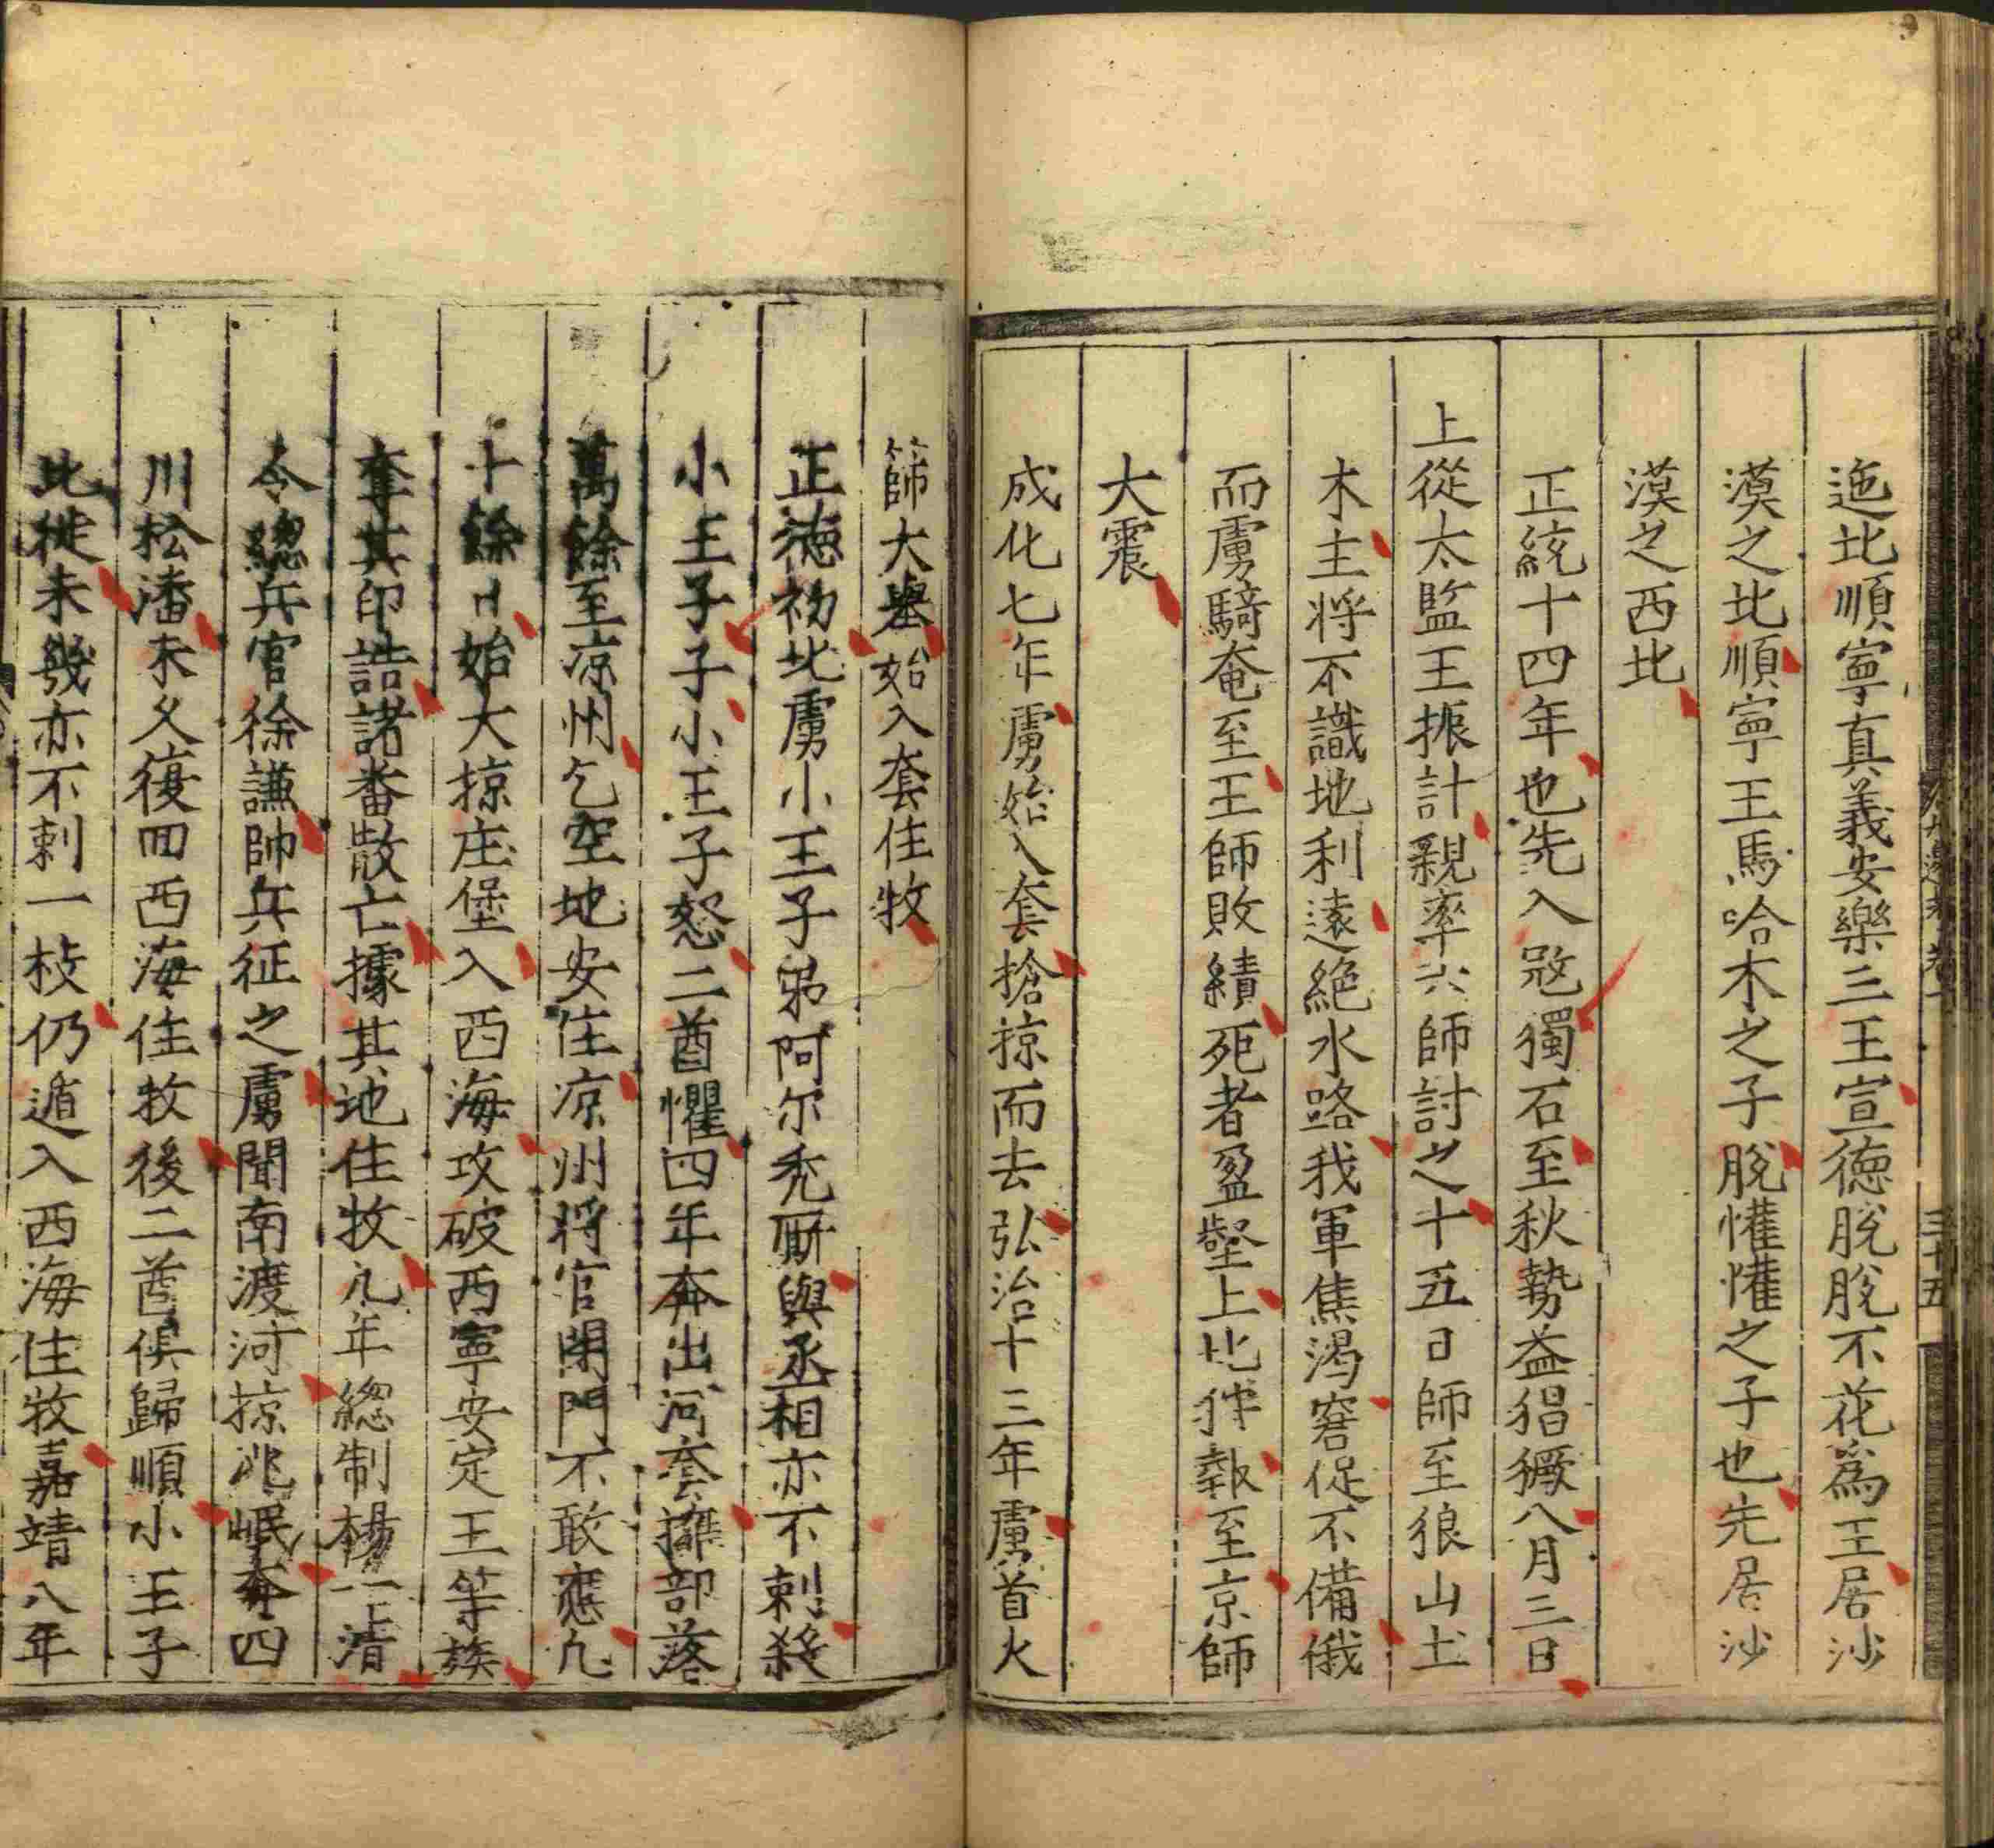 迤北順寧真義安樂三王宣德脫脫不花爲王居沙
漠之北順寧王馬哈木之子脫懽懽之子也先居沙
漠之西北
正統十四年也先入寇獨石至秋勢益猖獗八月三日
上從太監王振計親率六師討之十五日師至狼山土
木主將不識地利遠絶水路我軍焦渴窘促不備俄
而虜騎奄至王師敗績死者盈壑上北狩報至京師
大震
成化七年虜始入套搶掠而去弘治十三年虜首火
篩大舉始入套住牧
正德初北虜小王子弟阿尔秃厮與丞相亦不剌殺
小王子子小王子怒二酋懼四年奔出河套擁部落
萬餘至凉州乞空地安住凉州將官閉門不敢應凡
十餘日始大掠庄堡入西海攻破西寧安定王等族
奪其印誥諸畨散亡據其地住牧九年總制楊一清
令總兵官徐謙帥兵征之虜聞南渡河掠洮岷奔四
川松潘未乆復回西海住牧後二酋俱歸順小王子
北徙未幾亦不剌一枝仍遁入西海住牧嘉靖八年
三十五